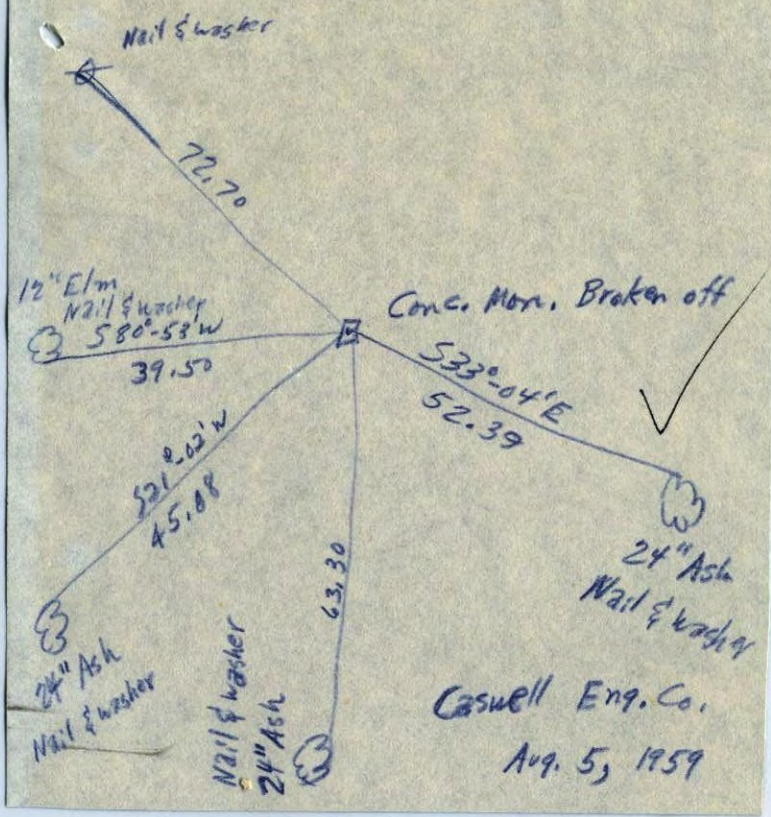 Nail & washer
72.70
12" Elm
Nail & washer
S80°-53'W
39.50
Conc. Mon. Broken off
S33°-04'E
52.39
S21°-02'W
45.08
63.30
24" Ash
Nail & washer
24" Ash
Nail & washer
Nail & washer
24" Ash
Caswell Eng. Co.
Aug. 5, 1959